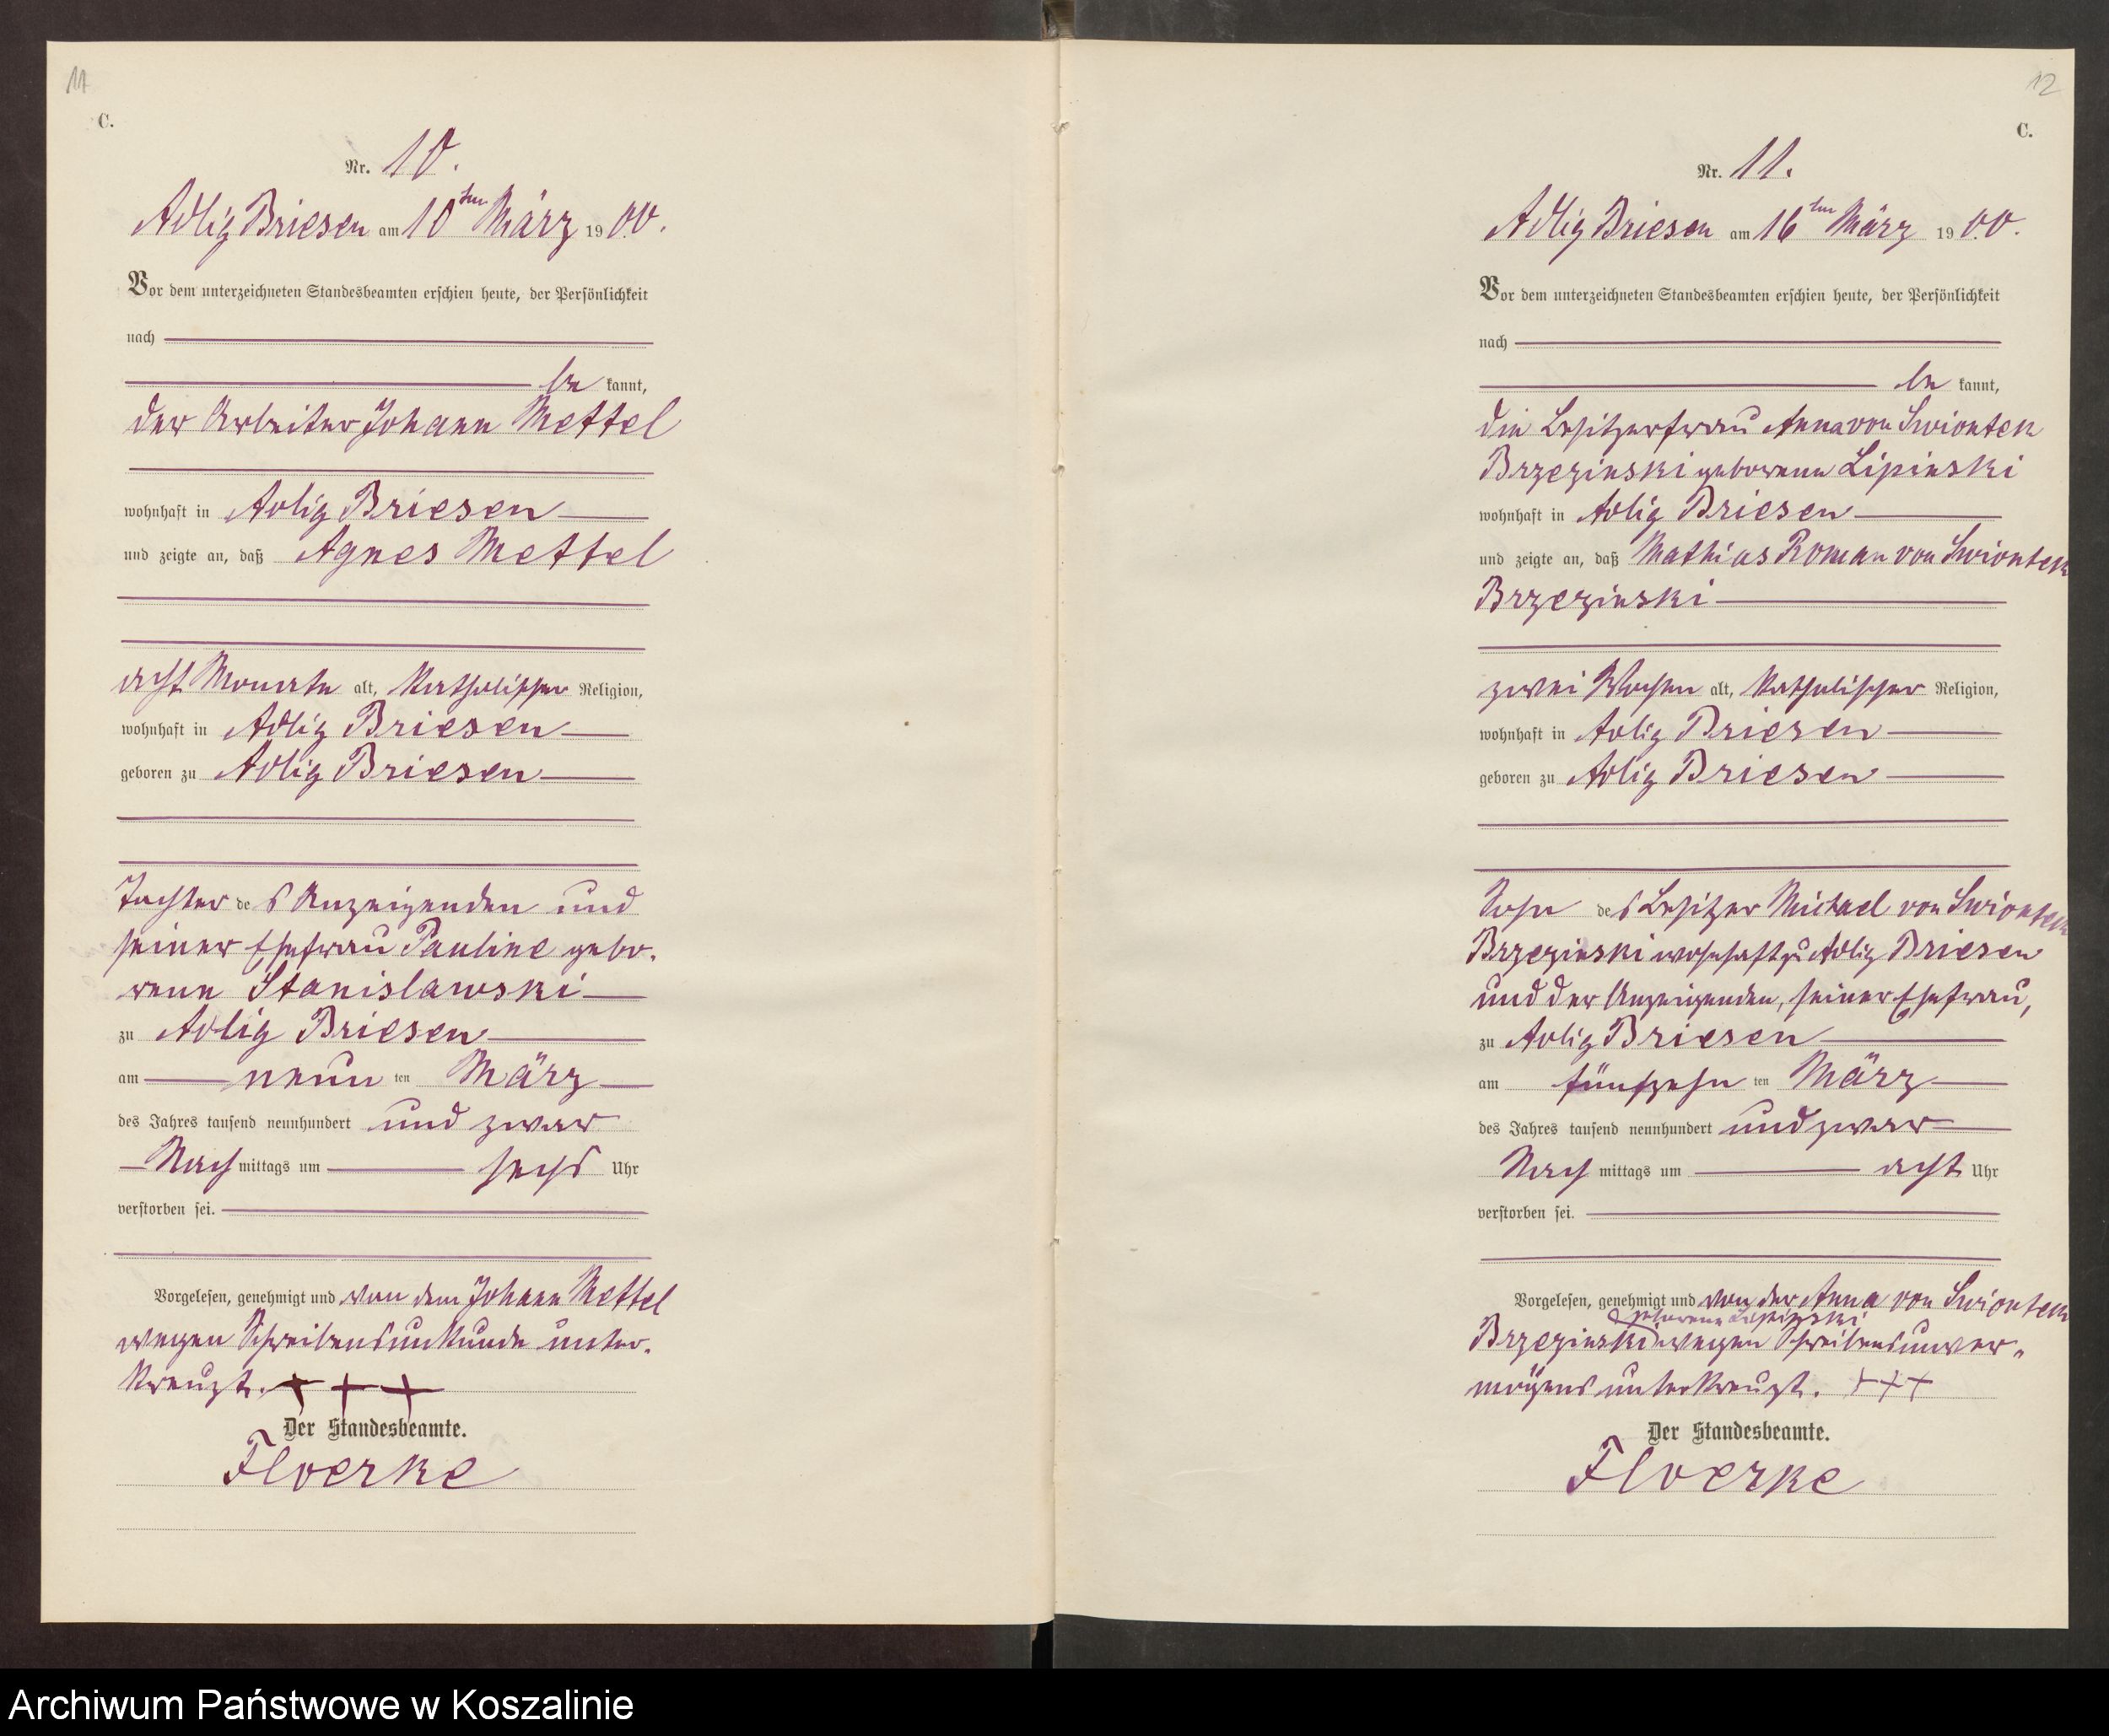 11
C.
Nr. 10.
Adlig Briesen am 10ten März 1900.
Vor dem unterzeichneten Standesbeamten erschien heute, der Persönlichkeit
nach
be kannt,
der Arbeiter Johann Mettel
wohnhaft in Adlig Briesen
und zeigte an, daß Agnes Mettel
acht Monate alt, katholischer Religion,
wohnhaft in Adlig Briesen
geboren zu Adlig Briesen
Tochter des Anzeigenden und
seiner Ehefrau Pauline gebo-
rene Stanislawski
zu Adlig Briesen
am neun ten März
des Jahres tausend neunhundert und zwar
Nach mittags um sechs Uhr
verstorben sei.
Vorgelesen, genehmigt und von dem Johann Mettel
wegen Schreibensunkunde unter-
kreuzt. + + +
Der Standesbeamte.
Floerke
12
C.
Nr. 11.
Adlig Briesen am 16ten März 1900.
Vor dem unterzeichneten Standesbeamten erschien heute, der Persönlichkeit
nach
be kannt,
die Besitzerfrau Anna von Swiontek
Brzezinski geborene Lipinski
wohnhaft in Adlig Briesen
und zeigte an, daß Mathias Roman von Swiontek
Brzezinski
zwei Wochen alt, katholischer Religion,
wohnhaft in Adlig Briesen
geboren zu Adlig Briesen
Sohn des Besitzer Michael von Swiontek
Brzezinski wohnhaft zu Adlig Briesen
und der Anzeigenden, seiner Ehefrau,
zu Adlig Briesen
am fünfzehn ten März
des Jahres tausend neunhundert und zwar
Nach mittags um acht Uhr
verstorben sei.
Vorgelesen, genehmigt und von der Anna von Swiontek
geborene Lipinski
Brzezinski wegen Schreibensunver-
mögens unterkreuzt. +++
Der Standesbeamte.
Floerke
Archiwum Państwowe w Koszalinie